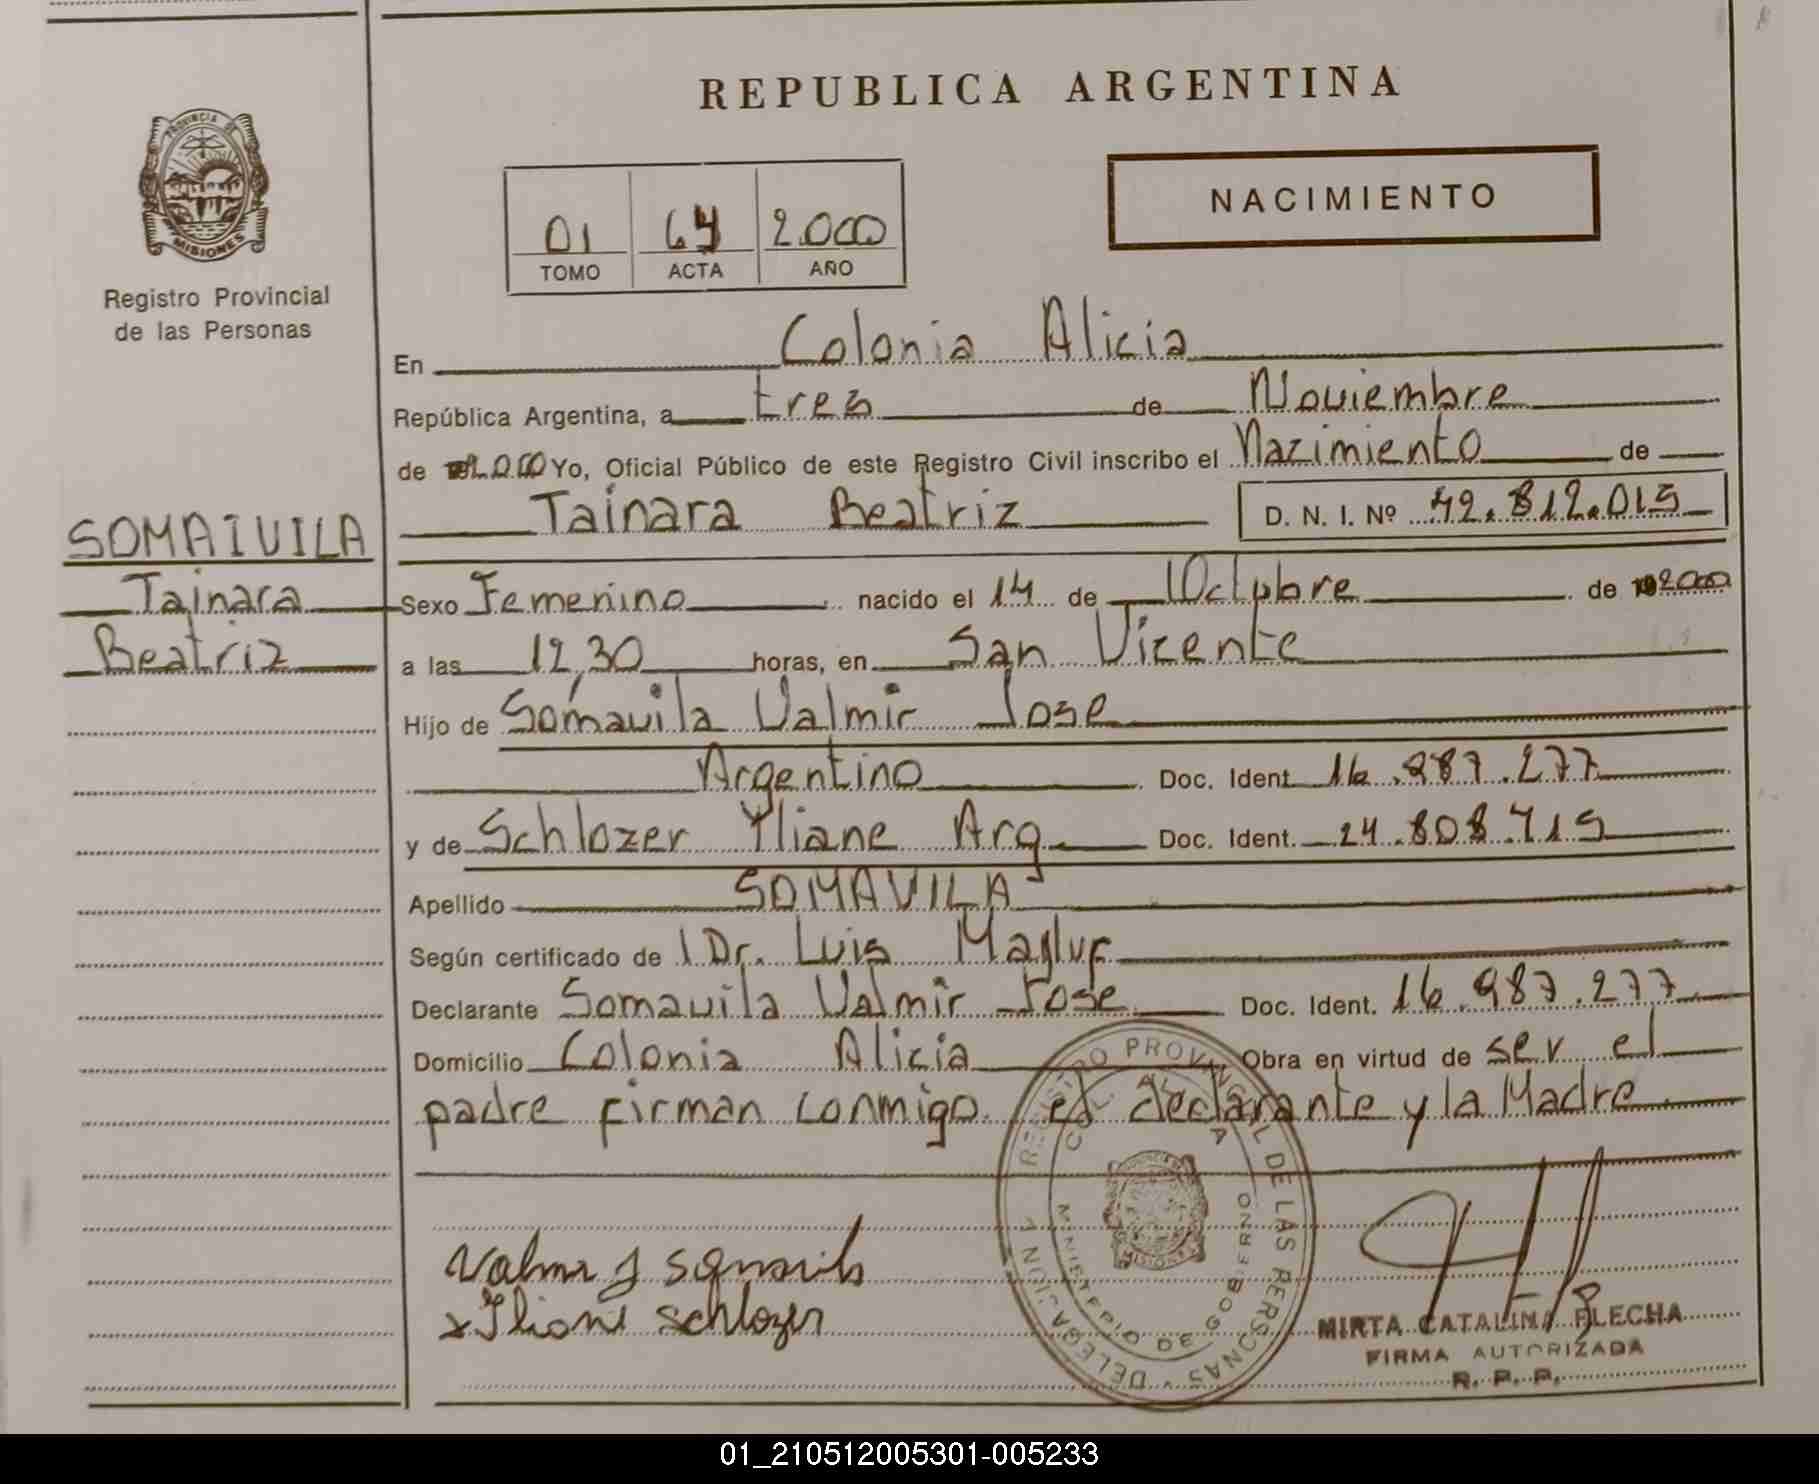 REPUBLICA ARGENTINA
PROVINCIA DE
MISIONES
Registro Provincial
de las Personas
01 64 2.000
TOMO ACTA AÑO
NACIMIENTO
En Colonia Alicia
República Argentina, a tres de Noviembre
de 2.000 Yo, Oficial Público de este Registro Civil inscribo el Nazimiento de
Tainara Beatriz D. N. I. Nº 42.812.015
SOMAIVILA
Tainara
Beatriz
Sexo Femenino nacido el 14 de Octubre de 2000
a las 12,30 horas, en San Vicente
Hijo de Somavila Valmir Jose
Argentino Doc. Ident. 16.987.277
y de Schlozer Yliane Arg. Doc. Ident. 24.808.715
Apellido SOMAVILA
Según certificado de Dr. Luis
Declarante Somavila Valmir Jose Doc. Ident. 16.987.277
Domicilio Colonia Alicia Obra en virtud de ser el
padre firman conmigo el declarante y la Madre
REGISTRO PROVINCIAL DE LAS PERSONAS - DELEGACION
COL. ALICIA
MINISTERIO DE GOBIERNO
MISIONES
Schlozer
MIRTA CATALINA FLECHA
FIRMA AUTORIZADA
R. P. P.
01_210512005301-005233